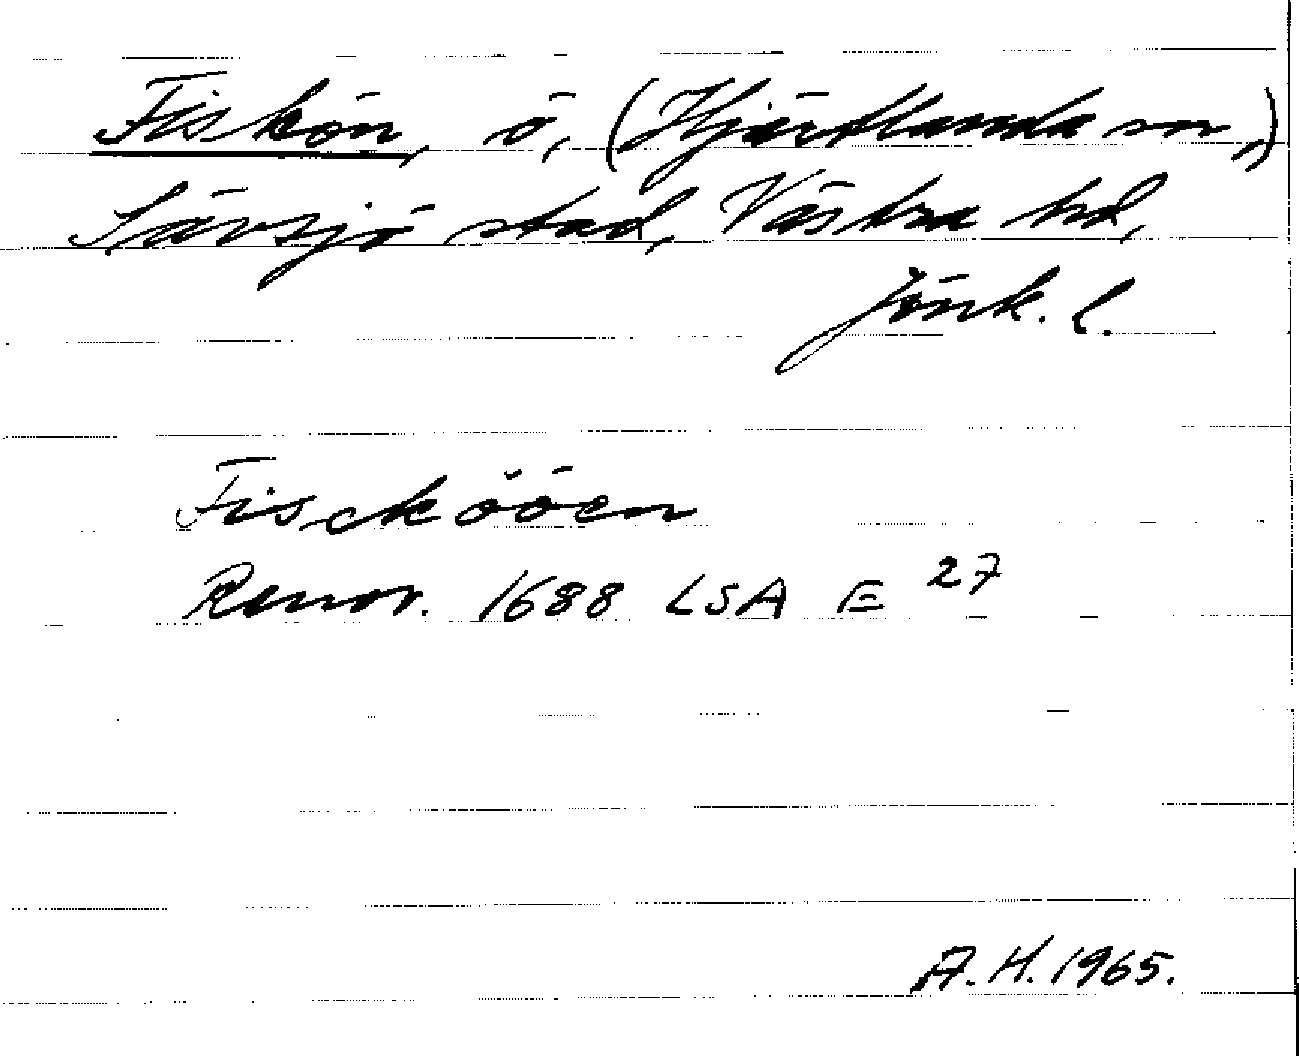 Fiskön, ö, (Hjärtlanda sn,)
Sävsjö stad, Västra hd,
Jönk. l.
Fisckööen
Renov. 1688 LSA E 27
A.H. 1965.